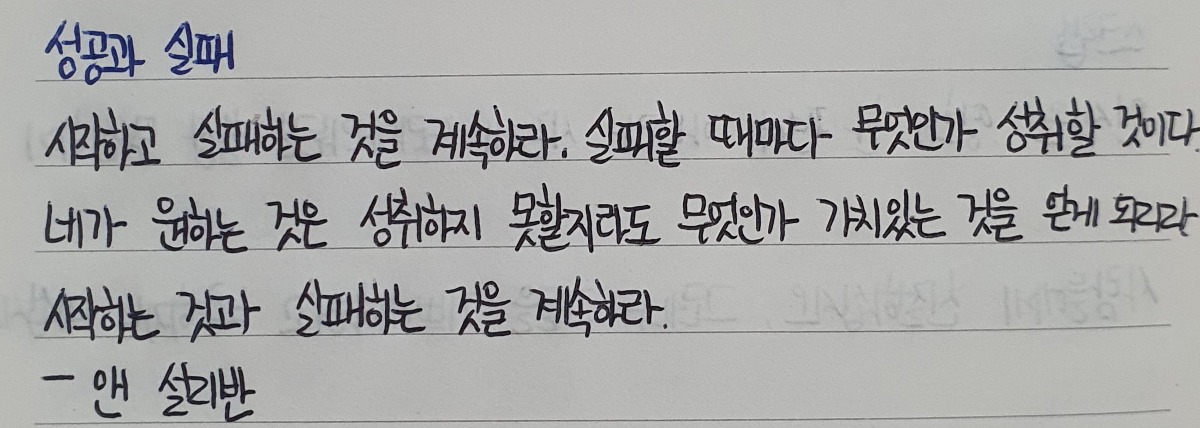 성공과 실패
시작하고 실패하는 것을 계속하라. 실패할 때마다 무엇인가 성취할 것이다.
네가 원하는 것은 성취하지 못할지라도 무엇인가 가치있는 것을 얻게 되리라
시작하는 것과 실패하는 것을 계속하라.
- 앤 설리반